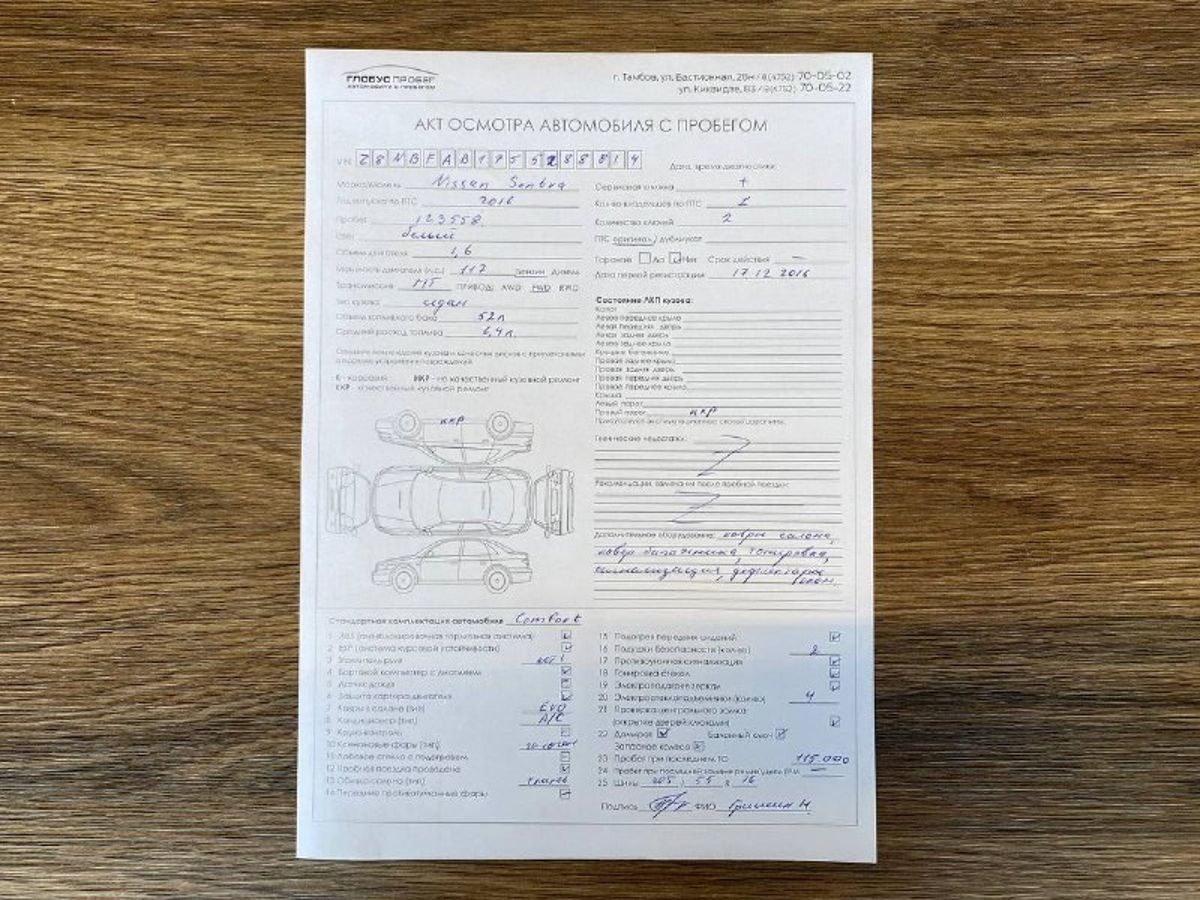 ГЛОБУС ПРОБЕГ
АВТОМОБИЛИ С ПРОБЕГОМ
г. Тамбов, ул. Бастионная, 28н / 8(4752) 70-05-02
ул. Киквидзе, 83 / 8(4752) 70-05-22
АКТ ОСМОТРА АВТОМОБИЛЯ С ПРОБЕГОМ
VIN Z8NBFAB17
Дата, время диагностики:
Марка/Модель Nissan Sentra
Год выпуска по ПТС 2016
Пробег 123558
Цвет белый
Объем двигателя 1,6
Мощность двигателя (л.с.) 117 Бензин Дизель
Трансмиссия МТ ПРИВОД: AWD FWD RWD
Тип кузова седан
Объем топливного бака 52л
Средний расход топлива 6,4л.
К - коррозия НКР - не качественный кузовной ремонт
ККР - качественный кузовной ремонт
ККР
Сервисная книжка +
Кол-во владельцев по ПТС 1
Количество ключей 2
ПТС оригинал / дубликат
Гарантия Да Нет Срок действия —
Дата первой регистрации 17 12 2016
Состояние ЛКП кузова:
Капот
Левое переднее крыло
Левая передняя дверь
Левая задняя дверь
Левое заднее крыло
Крышка багажника
Правое заднее крыло
Правая задняя дверь
Правая передняя дверь
Правое переднее крыло
Крыша
Левый порог
Правый порог ккр
Технические недостатки:
Рекомендации, замечания после пробной поездки:
Дополнительное оборудование: ковры салона,
ковер багажника, тонировка,
сигнализация, дефлекторы
окон.
Стандартная комплектация автомобиля Comfort
1 ABS (антиблокировочная тормозная система)
2 ESP (система курсовой устойчивости)
3
4 Бортовой компьютер с дисплеем
5 Датчик дождя
6 Защита картера двигателя
7 Ковры в салоне (тип) EVO
8 Кондиционер (тип) A/C
9 Круиз-контроль
10 Ксеноновые фары (тип)
11 Лобовое стекло с подогревом
12 Пробная поездка проведена
13 Обивка салона (тип)
14 Передние противотуманные фары
15 Подогрев передних сидений
16 Подушки безопасности (кол-во) 2
17 Противоугонная сигнализация
18 Тонировка стекол
19 Электроподогрев зеркал
20 Электростеклоподъемники (кол-во) 4
21 Проверка центрального замка
(открытие дверей ключами)
22 Домкрат Балонный ключ
Запасное колесо
23 Пробег при последнем ТО 115.000
24 Пробег при последней замене ремня/цепи ГРМ —
25 Шины 205 / 55 R 16
Подпись ФИО Гришин Н.